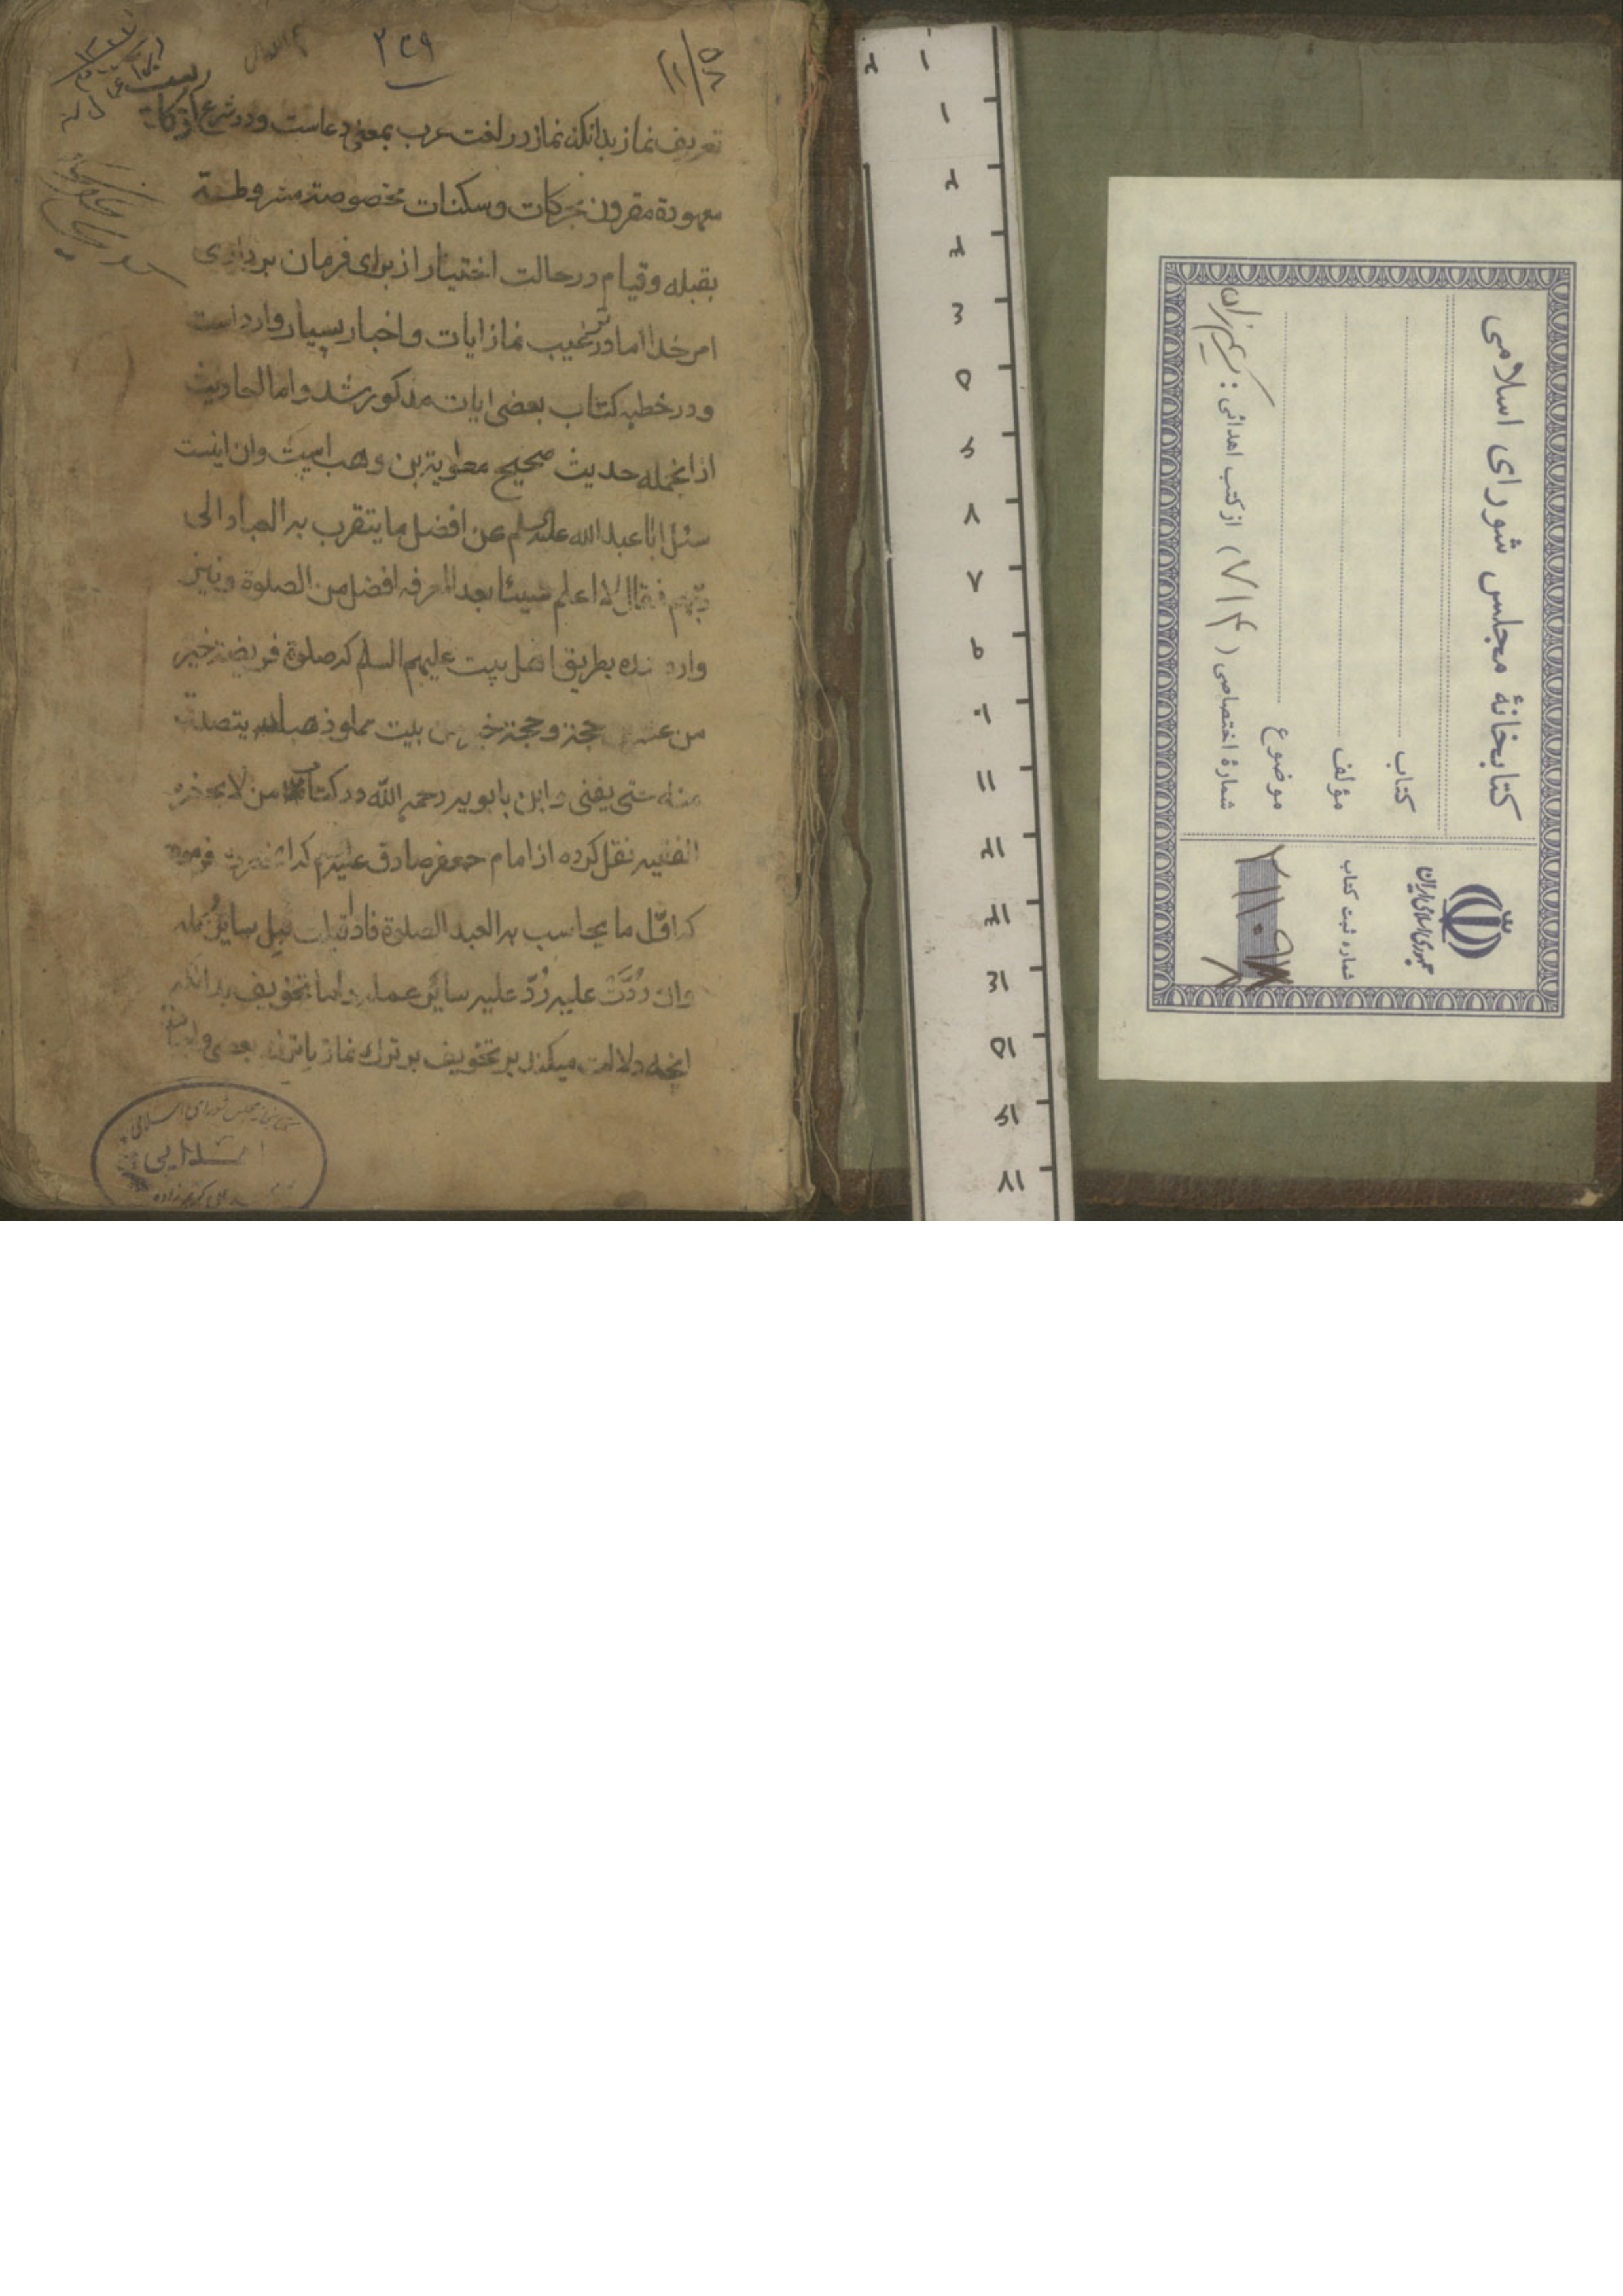 ۲۳۹
تعریف نماز بدانکه نماز در لغت عرب بمعنی دعاست و در شرع
معهودة مقرون بحرکات و سکنات مخصوصة مشروطة
بقبله و قیام در حالت اختیار از برای فرمان برداری
امر خدا اما در ترغیب نماز ایات و اخبار بسیار وارد است
و در خطبه کتاب بعضی ایات مذکور شد و اما احادیث
از انجمله حدیث صحیح معویة بن وهب است و ان اینست
سئل ابا عبدالله علیه السلم عن افضل ما یتقرب به العباد الی
ربهم فقال لا اعلم شیئا بعد المعرفه افضل من الصلوة و نیز
وارد شده بطریق اهل بیت علیهم السلم که صلوة فریضة خیر
من حجة و حجة خیر من بیت مملو ذهبا یتصدق
منه حتی یفنی و ابن بابویه رحمه الله در کتاب من لا یحضره
الفقیه نقل کرده از امام جعفر صادق علیه السلم که انحضرت فرموده
که اول ما یحاسب به العبد الصلوة فاذا قبلت قبل سایر عمله
وان رُدَّت علیه رُدّ علیه سائر عمله و اما تخویف بدانکه
انچه دلالت میکند بر تخویف بر ترک نماز
کتابخانهٔ مجلس شورای اسلامی
کتاب
مؤلف
موضوع
شمارهٔ اختصاصی ( ۷۱۴ ) از کتب اهدائی :
جمهوری اسلامی ایران
شماره ثبت کتاب
کتابخانه مجلس شورای اسلامی
اهدایی
۱
۲
۳
۵
۷
۸
۹
۱۰
۱۱
۱۲
۱۳
۱۵
۱۷